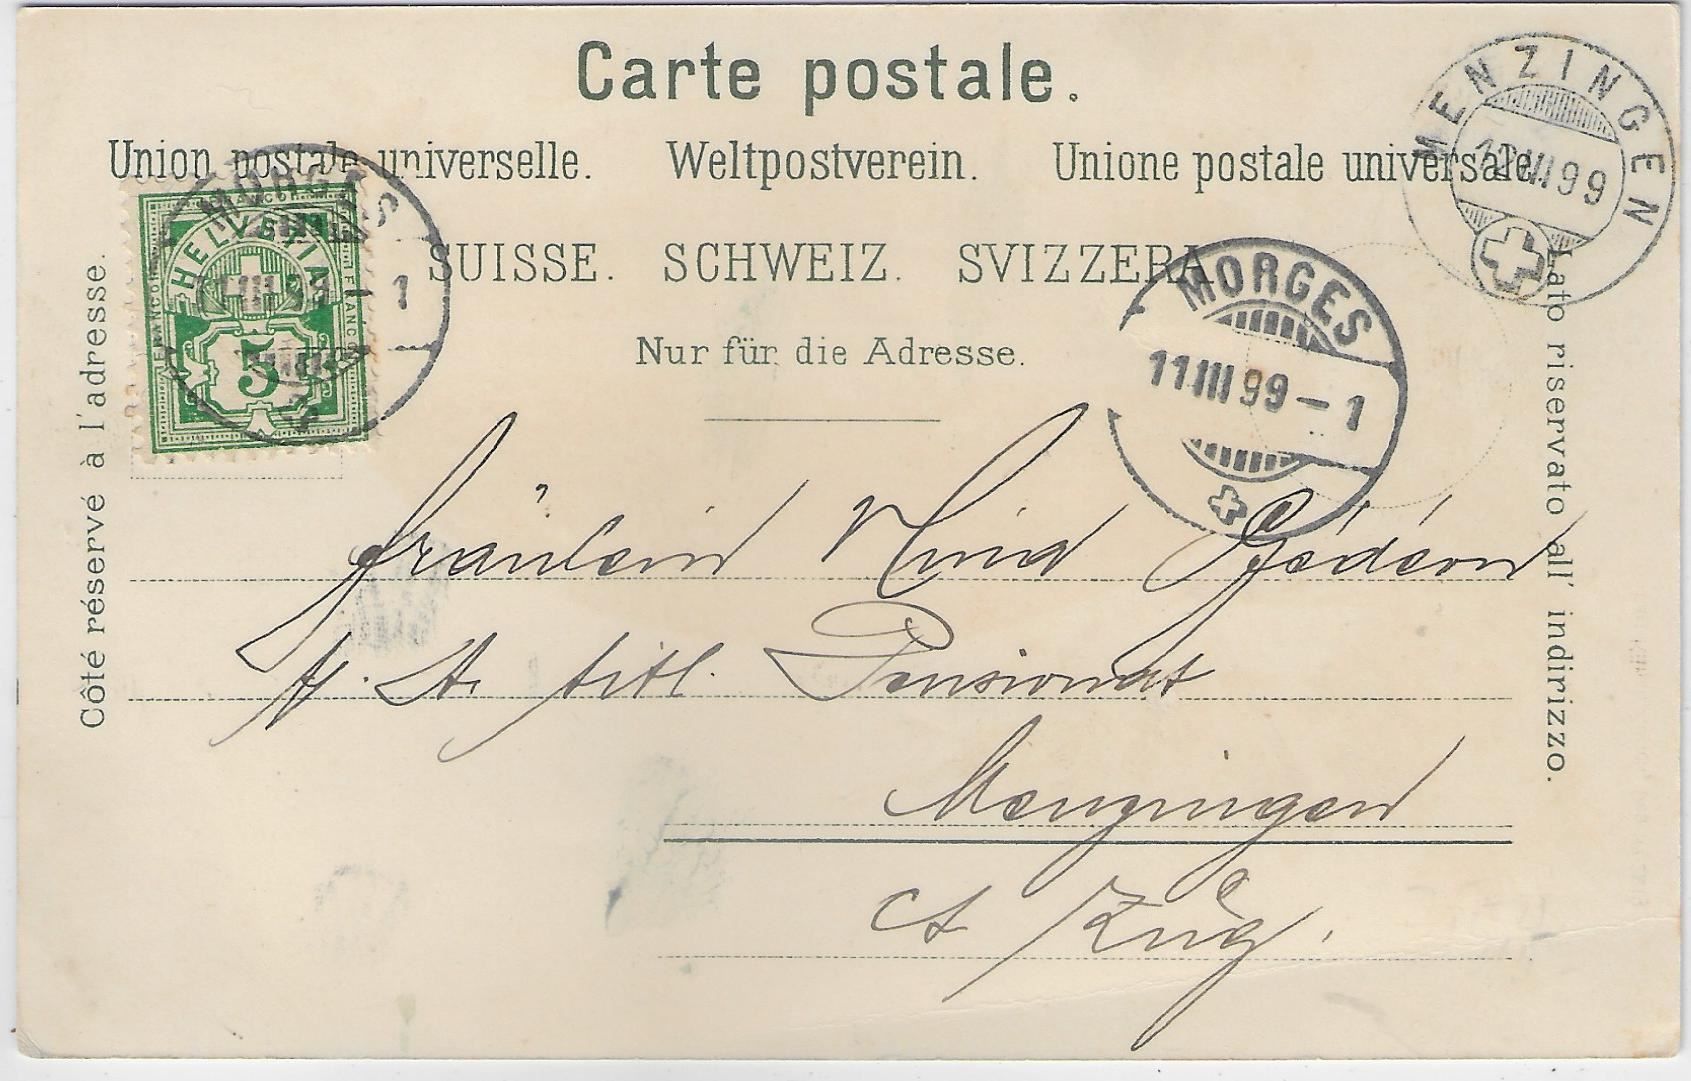 Carte postale.
Union postale universelle. Weltpostverein. Unione postale universale.
SUISSE. SCHWEIZ. SVIZZERA
Nur für die Adresse.
Côté réservé à l'adresse.
Lato riservato all' indirizzo.
MENZINGEN
12.III.99
MORGES
11.III.99–1
MORGES
11.III.99–1
FRANCO
HELVETIA
FRANCO
FRANCO
5
Fräulein Gédéon
titl. Pensionat
Menzingen
Ct Zug.